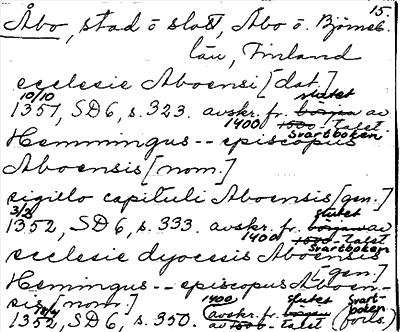 15.
Åbo, stad o slott, Åbo o. Björneb.
län, Finland
ecclesie Aboensi [dat.]
10/10 slutet
1351, SD6, s. 323. avskr. fr. början av
1400 1500-talet
Svartboken
Hemmingus -- episcopus
Aboensis [nom.]
sigillo capituli Aboensis [gen.]
3/2 slutet
1352, SD6, s. 333. avskr. fr. början av
1400 1500-talet
Svartboken
ecclesie dyocesis Aboensis
[gen.]
Hemingus -- episcopus Aboen-
sis [nom.]
1400 slutet Svart-
1352, SD6, s. 350. (avskr. fr. början boken
av 1500-talet (orig.)